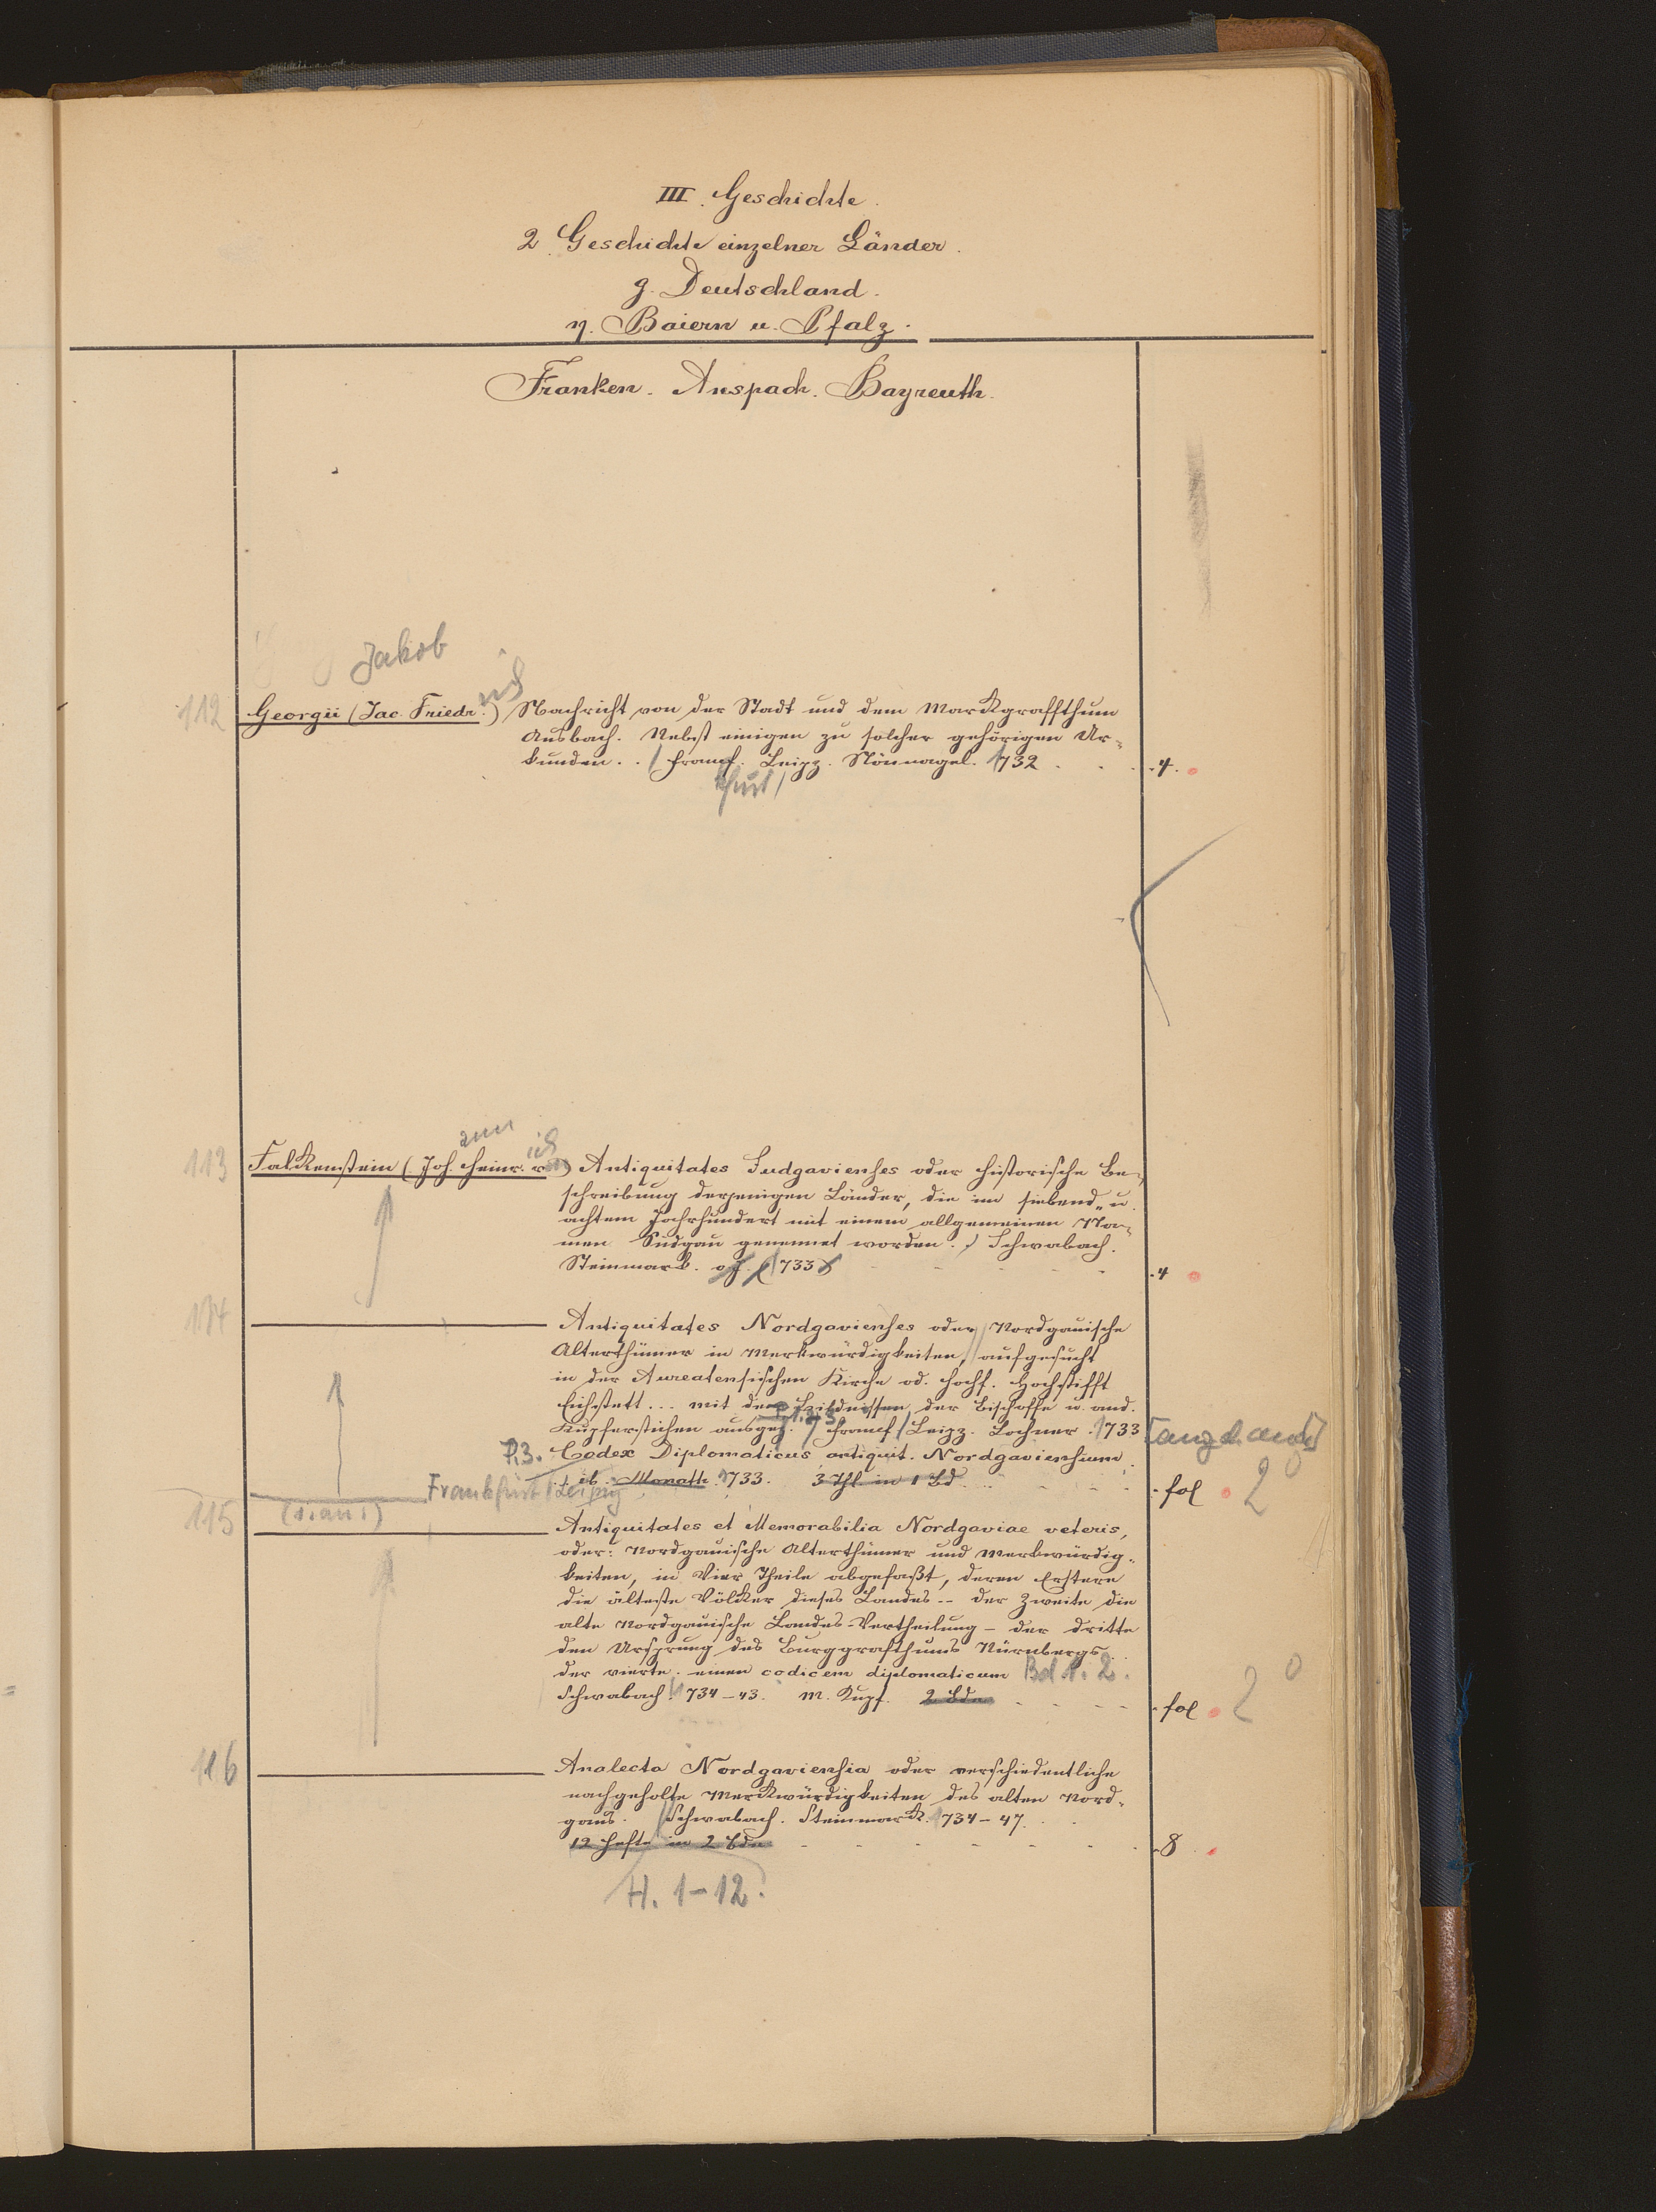 III. Geschichte.
2. Geschichte einzelner Länder.
g. Deutschland.
η. Baiern u. Pfalz.
Franken. Anspach. Bayreuth.
Jakob
112 Georgii (Jac. Friedr.) Nachricht von der Stadt und dem Markgraffthum
Ansbach. Nebst einigen zu solcher gehörigen Ur-
kunden. . / Francf. Leipz. Nönnagel. 1732 . . . 4.
furt /
ann
113 Falkenstein (Joh. Heinr. von) Antiquitates Sudgavienses oder historische Be-
schreibung derjenigen Länder, die im siebend- u.
achtem Jahrhundert mit einem allgemeinen Na-
men Sudgau genennet worden. / Schwabach.
Steinmark. o. J. (1733) 4
114 Antiquitates Nordgavienses oder Nordgauische
Alterthümer in Merkwürdigkeiten, aufgesucht
in der Aureatensischen Kirche od. Hochf. Hochstifft
Eichstett... mit den Bildnissen der Bischoffe u. and.
Kupferstichen ausgez. / Francf / Leipz. Lochner. 1733
P. 3. Codex Diplomaticus antiquit. Nordgaviensium.
ib. Monath. 1733. 3 Thl in 1 Bd . . fol 2°
Frankfurt / Leipzig
115 Antiquitates et Memorabilia Nordgaviae veteris,
oder: Nordgauische Alterthümer und Merkwürdig-
keiten, in Vier Theile abgefaßt, deren Erstere
die älteste Völcker dieses Landes -- der Zweite die
alte Nordgauische Landes-Vertheilung - der dritte
den Ursprung des Burggrafthums Nürnbergs..
der vierte. einen codicem diplomaticum Bd 1. 2.
Schwabach. 1734-43. M. Kupf. 2 Bde fol 2°
116 Analecta Nordgaviensia oder verschiedentliche
nachgeholte Merkwürdigkeiten des alten Nord-
gaus. / Schwabach. Steinmark. 1734-47.
12 Hefte in 2 Bde 8
H. 1-12.